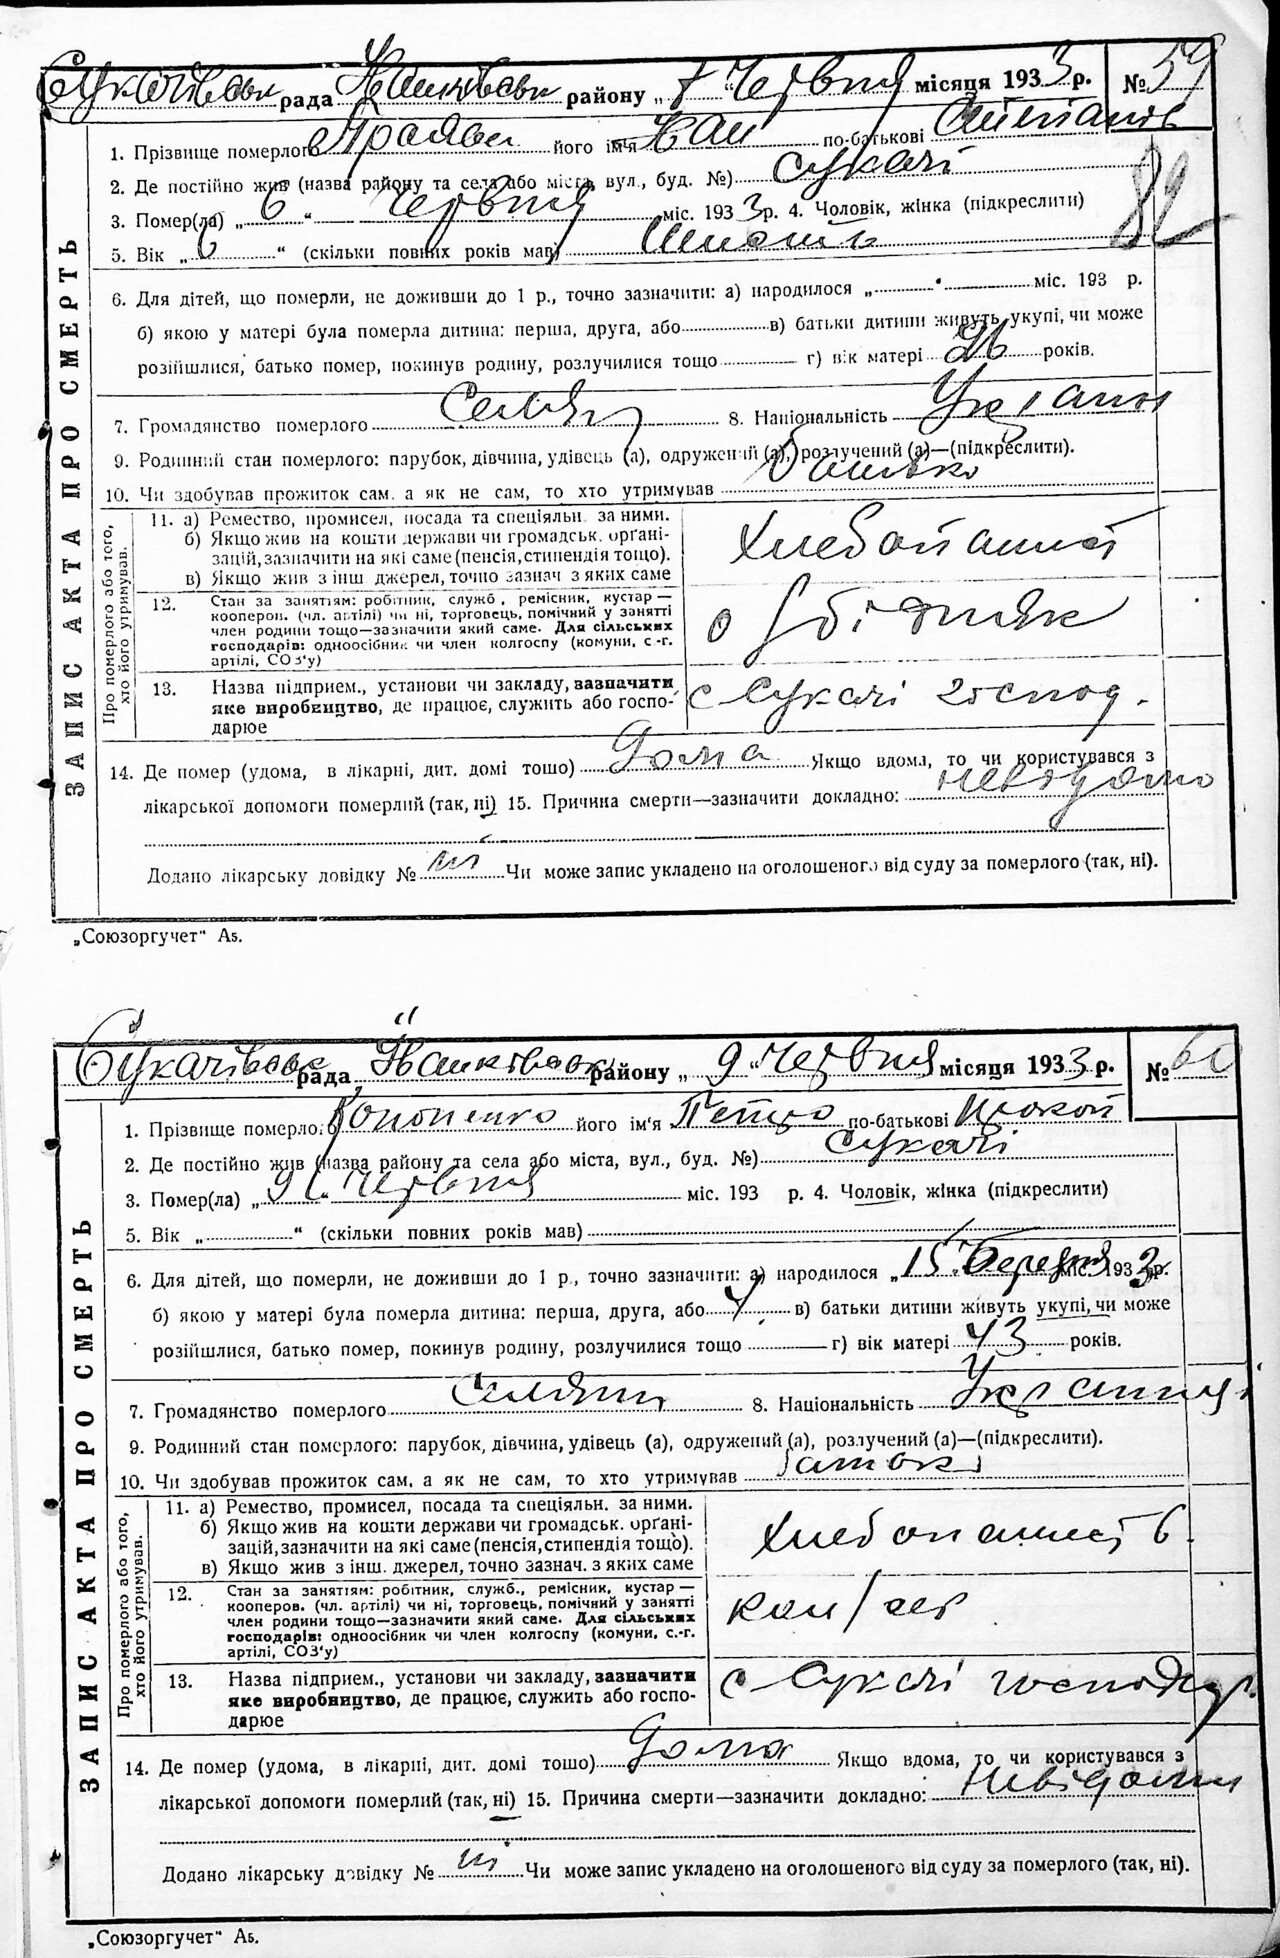 Сукачівська рада Іванківськ району „ 7 " Червня місяця 1933 р. № 59
1. Прізвище померлого його ім'я Іван по-батькові Степанов
82
2. Де постійно жив (назва району та села або міста, вул., буд. №) Сукачі
3. Помер(ла) „ 6 " Червня міс. 1933 р. 4. Чоловік, жінка (підкреслити)
5. Вік „ 6 " (скільки повних років мав) Шість
6. Для дітей, що померли, не доживши до 1 р., точно зазначити: а) народилося „ " міс. 193 р.
б) якою у матері була померла дитина: перша, друга, або в) батьки дитини живуть укупі, чи може
розійшлися, батько помер, покинув родину, розлучилися тощо г) вік матері 26 років.
7. Громадянство померлого Селян 8. Національність Українц
9. Родинний стан померлого: парубок, дівчина, удівець (а), одружений (а), розлучений (а)—(підкреслити).
10. Чи здобував прожиток сам, а як не сам, то хто утримував батько
ЗАПИС АКТА ПРО СМЕРТЬ
Про померлого або того, хто його утримував.
11. а) Ремество, промисел, посада та спеціяльн. за ними.
б) Якщо жив на кошти держави чи громадськ. орґані-
зацій, зазначити на які саме (пенсія, стипендія тощо).
в) Якщо жив з інш джерел, точно зазнач з яких саме
Хлебопашест
12. Стан за занятіям: робітник, служб., ремісник, кустар —
кооперов. (чл. артілі) чи ні, торговець, помічний у занятті
член родини тощо—зазначити який саме. Для сільських
господарів: одноосібник чи член колгоспу (комуни, с.-г.
артілі, СОЗ'у)
о/бідняк
13. Назва підприєм., установи чи закладу, зазначити
яке виробництво, де працює, служить або госпо-
дарює
с Сукачі господ.
14. Де помер (удома, в лікарні, дит. домі тошо) Дома Якщо вдома, то чи користувався з
лікарської допомоги померлий (так, ні) 15. Причина смерти—зазначити докладно: невідомо
Додано лікарську довідку № ні Чи може запис укладено на оголошеного від суду за померлого (так, ні).
„Союзоргучет" А5.
Сукачівськ рада Іванківськ району „ 9 " Червня місяця 1933 р. № 60
1. Прізвище померлого Кононенко його ім'я Петро по-батькові Прокоп
2. Де постійно жив (назва району та села або міста, вул., буд. №) Сукачі
3. Помер(ла) „ 9 " Червня міс. 193 р. 4. Чоловік, жінка (підкреслити)
5. Вік „ " (скільки повних років мав)
6. Для дітей, що померли, не доживши до 1 р., точно зазначити: а) народилося „ 15 " Березня міс. 1933 р.
б) якою у матері була померла дитина: перша, друга, або 4 в) батьки дитини живуть укупі, чи може
розійшлися, батько помер, покинув родину, розлучилися тощо г) вік матері 43 років.
7. Громадянство померлого Селянин 8. Національність Українц
9. Родинний стан померлого: парубок, дівчина, удівець (а), одружений (а), розлучений (а)—(підкреслити).
10. Чи здобував прожиток сам, а як не сам, то хто утримував батько
ЗАПИС АКТА ПРО СМЕРТЬ
Про померлого або того, хто його утримував.
11. а) Ремество, промисел, посада та спеціяльн. за ними.
б) Якщо жив на кошти держави чи громадськ. орґані-
зацій, зазначити на які саме (пенсія, стипендія тощо).
в) Якщо жив з інш. джерел, точно зазнач. з яких саме
Хлебопашеств.
12. Стан за занятіям: робітник, служб., ремісник, кустар —
кооперов. (чл. артілі) чи ні, торговець, помічний у занятті
член родини тощо—зазначити який саме. Для сільських
господарів: одноосібник чи член колгоспу (комуни, с.-г.
артілі, СОЗ'у)
13. Назва підприєм., установи чи закладу, зазначити
яке виробництво, де працює, служить або госпо-
дарює
с Сукачі господар.
14. Де помер (удома, в лікарні, дит. домі тошо) Дома Якщо вдома, то чи користувався з
лікарської допомоги померлий (так, ні) 15. Причина смерти—зазначити докладно: Невідомо
Додано лікарську довідку № ні Чи може запис укладено на оголошеного від суду за померлого (так, ні).
„Союзоргучет" А5.